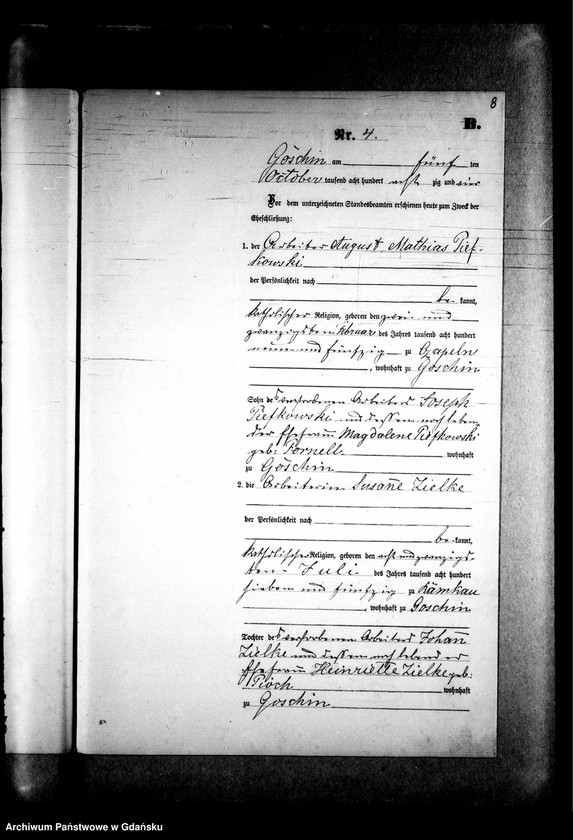 8
B.
Nr. 4.
Göschin am fünf ten
October tausend acht hundert acht zig und vier
Vor dem unterzeichneten Standesbeamten erschienen heute zum Zweck der
Eheschließung:
1. der Arbeiter August Mathias Tief-
kowski
der Persönlichkeit nach
be kannt,
katholischer Religion, geboren den zwei und
zwanzigsten Februar des Jahres tausend acht hundert
neun und fünfzig zu Czapeln
, wohnhaft zu Göschin
Sohn des verstorbenen Arbeiters Joseph
Tiefkowski und dessen noch leben-
der Ehefrau Magdalene Tiefkowski
geb: Fornell wohnhaft
zu Göschin
2. die Arbeiterin Susañe Zielke
der Persönlichkeit nach
be kannt,
katholischer Religion, geboren den acht und zwanzigs-
ten Juli des Jahres tausend acht hundert
sieben und fünfzig zu Rämkau
, wohnhaft zu Goschin
Tochter des verstorbenen Arbeiters Johan
Zielke und dessen noch lebend er
Ehefrau Heinriette Zielke geb:
Plöch wohnhaft
zu Goschin
Archiwum Państwowe w Gdańsku